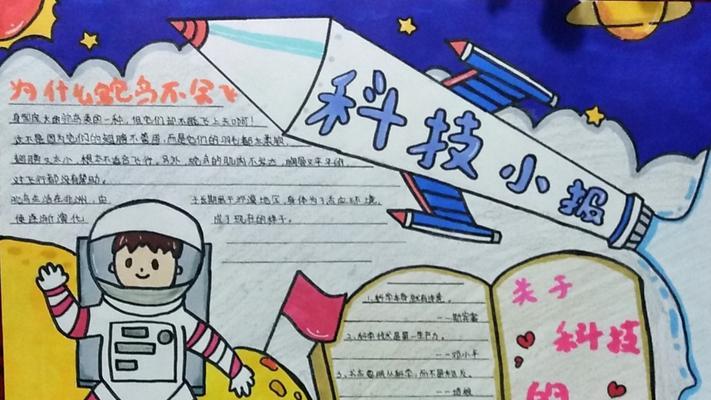 科技小报
为什么鸵鸟不会飞
身躯庞大的鸵鸟是鸟的一种，但它们却不能飞上天哦！
这不是因为它们的翅膀不善用，而是它们的羽毛都太柔软，
翅膀又太小，根本不适合飞行。另外，鸵鸟的肌肉不发达，胸骨又平平的，
对飞行都没有帮助。
鸵鸟生活在非洲，由 于长期居于沙漠地区，身体为了适应环境，
使逐渐演化 成了现在的样子。
1、科学本身就有诗意。
2、科学技术是第一生产力。
——邓小平
关于
科技
的